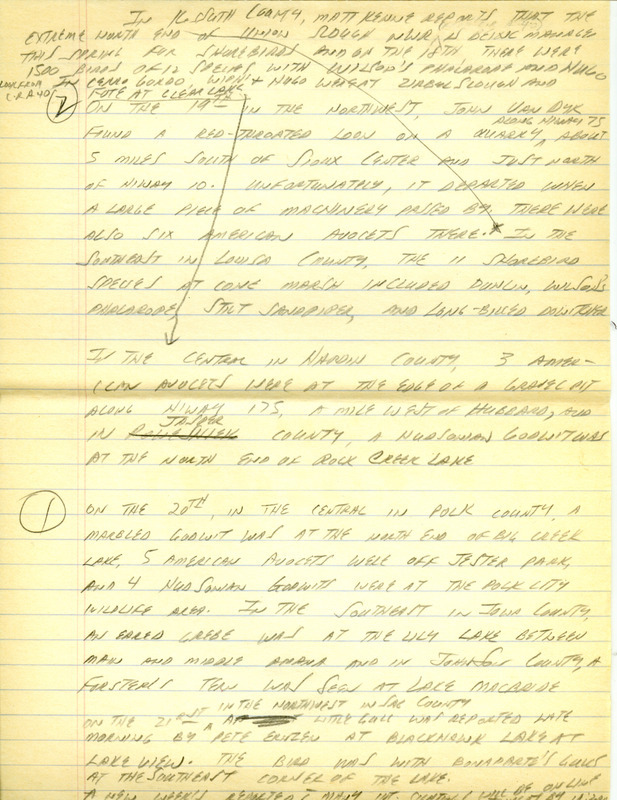 IN KOSSUTH COUNTY, MATT KENNE REPORTS THAT THE
EXTREME NORTH END OF UNION SLOUGH NWR IS BEING MANAGED
THIS SPRING FOR SHOREBIRDS AND ON THE 18TH THERE WERE
1500 BIRDS OF 12 SPECIES WITH WILSON'S PHALAROPE AND HUGO
IN CERRO GORDO, WIPH + HUGO WERE AT ZIRBEL SLOUGH AND
FOTE AT CLEAR LAKE
2 ON THE 19TH IN THE NORTHWEST, JOHN VAN DYK
ALONG HIWAY 75
FOUND A RED-THROATED LOON ON A QUARRY, ABOUT
5 MILES SOUTH OF SIOUX CENTER AND JUST NORTH
OF HIWAY 10. UNFORTUNATELY, IT DEPARTED WHEN
A LARGE PIECE OF MACHINERY PASSED BY. THERE WERE
ALSO SIX AMERICAN AVOCETS THERE. IN THE
SOUTHEAST IN LOUISA COUNTY, THE 11 SHOREBIRD
SPECIES AT CONE MARSH INCLUDED DUNLIN, WILSON'S
PHALAROPE, STILT SANDPIPER, AND LONG-BILLED DOWITCHER
IN THE CENTRAL IN HARDIN COUNTY, 3 AMER-
ICAN AVOCETS WERE AT THE EDGE OF A GRAVEL PIT
ALONG HIWAY 175, A MILE WEST OF HUBBARD, AND
JASPER
IN COUNTY, A HUDSONIAN GODWIT WAS
AT THE NORTH END OF ROCK CREEK LAKE
1 ON THE 20TH, IN THE CENTRAL IN POLK COUNTY, A
MARBLED GODWIT WAS AT THE NORTH END OF BIG CREEK
LAKE, 5 AMERICAN AVOCETS WERE OFF JESTER PARK,
AND 4 HUDSONIAN GODWITS WERE AT THE POLK CITY
WILDLIFE AREA. IN THE SOUTHEAST IN IOWA COUNTY,
AN EARED GREBE WAS AT THE LILY LAKE BETWEEN
MAIN AND MIDDLE AMANA AND IN JOHNSON COUNTY, A
FORSTER'S TERN WAS SEEN AT LAKE MACBRIDE
IN THE NORTHWEST IN SAC COUNTY
ON THE 21RST, A LITTLE GULL WAS REPORTED LATE
MORNING BY PETE ERNZEN AT BLACKHAWK LAKE AT
LAKE VIEW. THE BIRD WAS WITH BONAPARTE'S GULLS
AT THE SOUTHEAST CORNER OF THE LAKE.